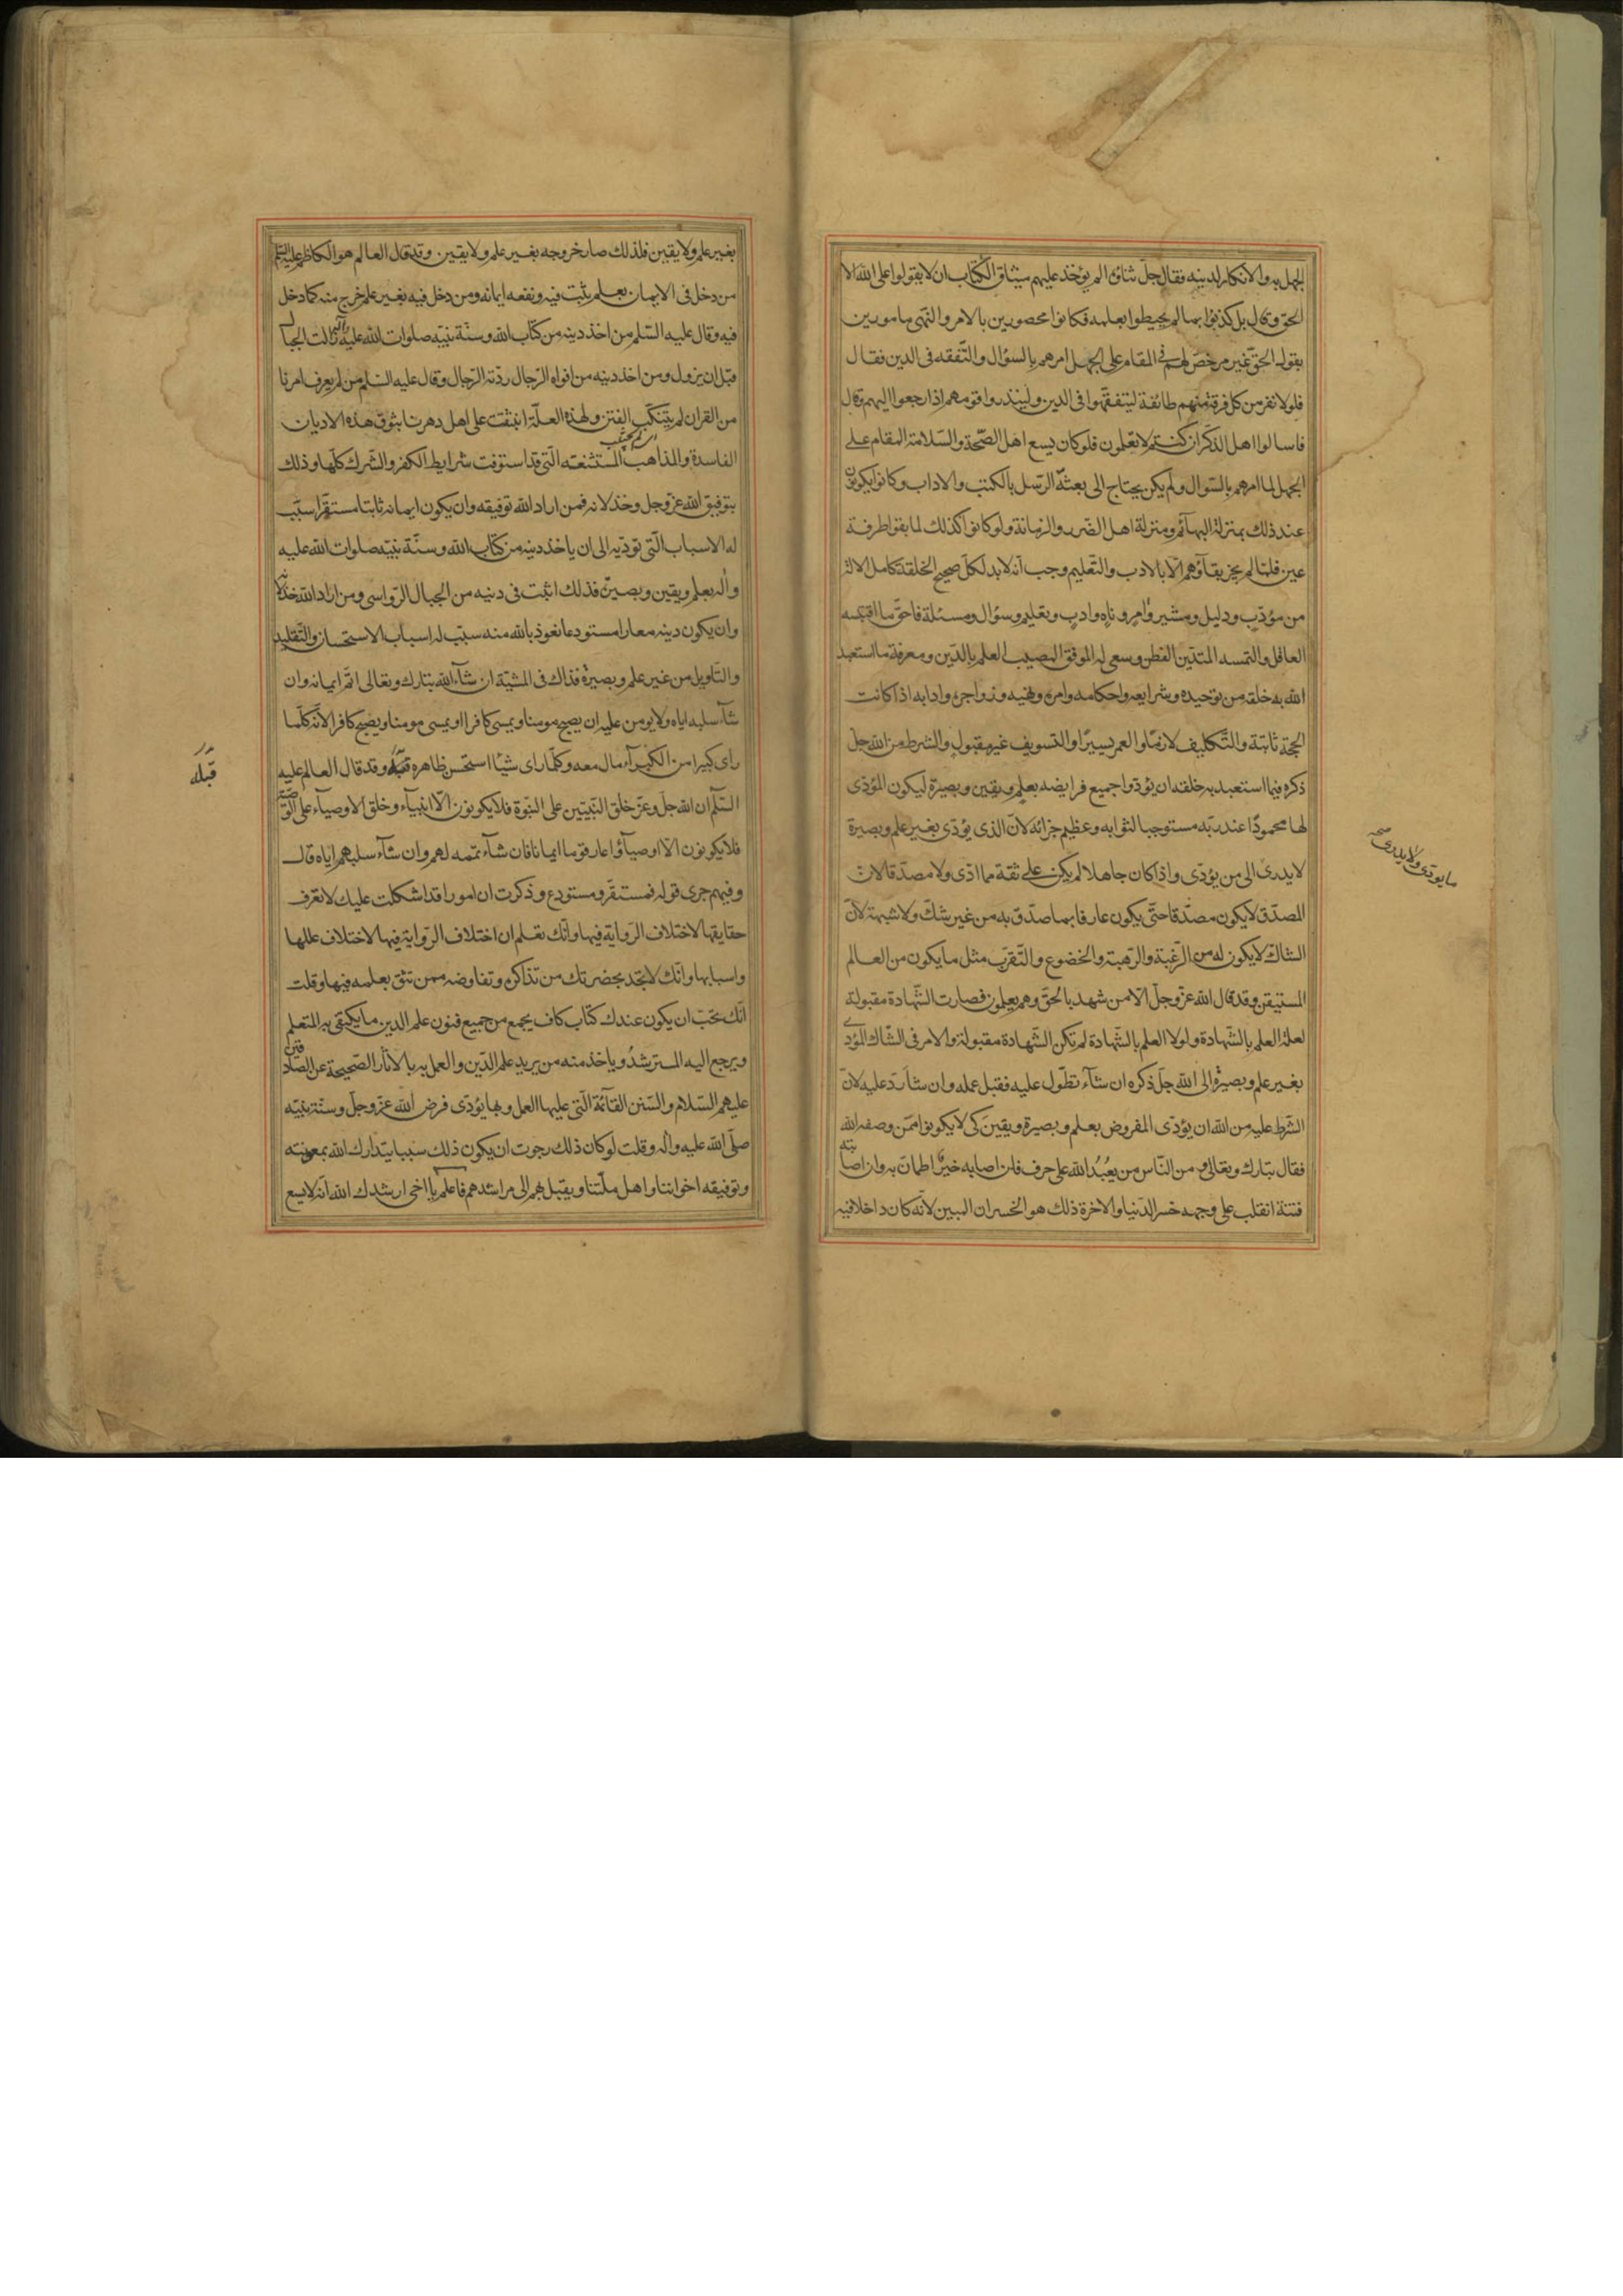 الجهل به والانكار لدينه فقال جلّ ثناؤه الم يؤخذ عليهم ميثاق الكتاب ان لا يقولوا على الله الا
الحق وقال بل كذبوا بما لم يحيطوا بعلمه فكانوا محصورين بالامر والنهى مامورين
بقول الحقّ غير مرخّص لهم فى المقام على الجهل امرهم بالسؤال والتّفقه فى الدين فقال
فلولا نفر من كل فرقة منهم طائفة ليتفقهوا فى الدين ولينذروا قومهم اذا رجعوا اليهم وقال
فاسالوا اهل الذكر ان كنتم لا تعلمون فلو كان يسع اهل الصّحة والسّلامة المقام على
الجهل لما امرهم بالسّوال ولم يكن يحتاج الى بعثة الرّسل بالكتب والاداب وكانوا يكونون
عند ذلك بمنزلة البهائم ومنزلة اهل الضّرر والزمانة ولو كانوا كذلك لما بقوا طرفة
عين فلمّا لم يجز بقاؤهم الّا بالادب والتّعليم وجب انّه لابد لكلّ صحيح الخلقة كامل الالة
من مؤدّب ودليل ومشير وآمر وناه وادب وتعليم وسؤال ومسئلة فاحقّ ما اقتبسه
العاقل والتمسه المتديّن الفطن وسعى له الموفق المصيب العلم بالدّين ومعرفة ما استعبد
الله به خلقه من توحيده وشرايعه واحكامه وامره ونهيه وزواجره وادابه اذا كانت
الحجّة ثابتة والتّكليف لازمًا والعمر يسيرًا والتسويف غير مقبول والشرط من الله جلّ
ذكره فيما استعبد به خلقه ان يؤدّوا جميع فرايضه بعلم ويقين وبصيرة ليكون المؤدّى
لها محمودًا عند ربّه مستوجبا لثوابه وعظيم جزائه لانّ الذى يؤدّى بغير علم وبصيرة
لا يدرى الى من يؤدّى واذا كان جاهلا لم يكن على ثقة مما ادّى ولا مصدّقا لانّ
المصدّق لا يكون مصدّقا حتّى يكون عارفا بما صدّق به من غير شكّ ولا شبهة لانّ
الشاكّ لا يكون له من الرّغبة والرّهبة والخضوع والتّقرّب مثل ما يكون من العالم
المستيقن وقد قال الله عزّ وجلّ الّا من شهد بالحقّ وهم يعلمون فصارت الشّهادة مقبولة
لعلّة العلم بالشّهادة ولولا العلم بالشّهادة لم تكن الشّهادة مقبولة والامر فى الشّاك المؤدّى
بغير علم وبصيرة الى الله جلّ ذكره ان شاء تطوّل عليه فقبل عمله وان شاء ردّ عليه لانّ
الشّرط عليه من الله ان يؤدّى المفروض بعلم وبصيرة ويقين كى لا يكونوا ممّن وصفه الله
فقال تبارك وتعالى ومن النّاس من يعبُدُ الله على حرف فان اصابه خيرٌ اطمانّ به وان اصابته
فتنة انقلب على وجهه خسر الدّنيا والاخرة ذلك هو الخسران المبين لانّه كان داخلا فيه
ما يودّى ولا يدرى صح
بغير علم ولا يقين فلذلك صار خروجه بغير علم ولا يقين وقد قال العالم هو الكاظم عليه السّلم
من دخل فى الايمان بعلم يثبت فيه ونفعه ايمانه ومن دخل فيه بغير علم خرج منه كما دخل
فيه وقال عليه السّلم من اخذ دينه من كتاب الله وسنّة نبيّه صلوات الله عليه وآله زالت الجبال
قبل ان يزول ومن اخذ دينه من افواه الرّجال ردّته الرّجال وقال عليه السّلم من لم يعرف امرنا
من القران لم يتنكّب الفتن ولهذه العلّة انبثقت على اهل دهرنا بثوق هذه الاديان
لم يجتنب
الفاسدة والمذاهب المستشنعة الّتى قد استوفت شرايط الكفر والشّرك كلّها وذلك
بتوفيق الله عزّ وجل وخذلانه فمن اراد الله توفيقه وان يكون ايمانه ثابتا مستقرّا سبّب
له الاسباب الّتى تؤدّيه الى ان ياخذ دينه من كتاب الله وسنّة نبيّه صلوات الله عليه
واله بعلم ويقين وبصيرة فذلك اثبت فى دينه من الجبال الرّواسى ومن اراد الله خذلانه
وان يكون دينه معارا مستودعا نعوذ بالله منه سبّب له اسباب الاستحسان والتّقليد
والتّاويل من غير علم وبصيرة فذاك فى المشيّة ان شآء الله تبارك وتعالى اتمّ ايمانه وان
شآء سلبه اياه ولا يومن عليه ان يصبح مومنا ويمسى كافرا او يمسى مومنا ويصبح كافرا لانّه كلّما
راى كبيرا من الكبرآء مال معه وكلّما راى شيئا استحسن ظاهره قبله وقد قال العالم عليه
السّلم ان الله جلّ وعزّ خلق النّبيّين على النبّوة فلا يكونون الّا انبيآء وخلق الاوصيآء على الوصيّة
فلا يكونون الّا اوصيآء واعار قوما ايمانا فان شآء تممه لهم وان شآء سلبهم اياه قال
وفيهم جرى قوله فمستقرّ ومستودع وذكرت ان امورا قد اشكلت عليك لا تعرف
حقايقها لاختلاف الرّواية فيها وانّك تعلم ان اختلاف الرّواية فيها لاختلاف عللها
واسبابها وانّك لا تجد بحضرتك من تذاكره وتفاوضه ممن تثق بعلمه فيها وقلت
انّك تحبّ ان يكون عندك كتاب كاف يجمع من جميع فنون علم الدين ما يكتفى به المتعلم
ويرجع اليه المسترشدُ وياخذ منه من يريد علم الدّين والعمل به بالاثار الصّحيحة عن الصّادقين
عليهم السّلام والسّنن القآئمة الّتى عليها العمل وبها يؤدّى فرض الله عزّ وجلّ وسنّة نبيّه
صلّى الله عليه واله وقلت لو كان ذلك رجوت ان يكون ذلك سببا يتدارك الله بمعونته
وتوفيقه اخواننا واهل ملّتنا ويقبل بهم الى مراشدهم فاعلم يا اخى ارشدك الله انّه لا يسع
قبله